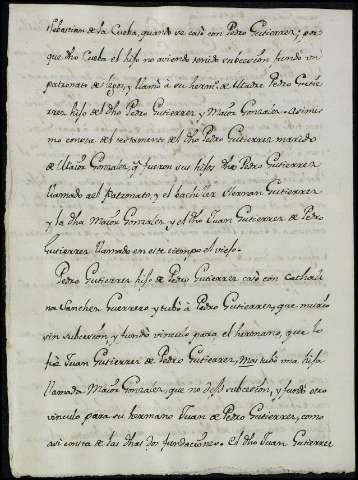 Sebastian de la Cueba, quando se casò con Pedro Gutierrez; por
que dho Cueba el hijo no aviendo tenido subcesion, fundò un
patronato de legos, y llamò à su hermo. de Madre Pedro Gutie
rrez hijo del dho Pedro Gutierrez y Maior Gonzalez. Asimis
mo consta del testamento del dho Pedro Gutierrez marido
de Maior Gonzalez, q. fueron sus hijos dho Pedro Gutierrez
llamado al Patronato, y el bachiller Hernan Gutierrez
y la dha Maior Gonzalez, y el dho Juan Gutierrez de Pedro
Gutierrez llamado en este tiempo el viejo.
Pedro Gutierrez hijo de Pedro Gutierrez casò con Cathali
na Sanchez Guerrero y tubò à Pedro Gutierrez, que muriò
sin subcesion, y fundò vinculo para el hermano, que lo
fuè Juan Gutierrez de Pedro Gutierrez, Mas tubò una hija
llamada Maior Gonzalez, que no dejò subcesion, y fundò otro
vinculo para su hermano Juan de Pedro Gutierrez, como
asi consta de las dhas dos fundaciones. El dho Juan Gutierrez